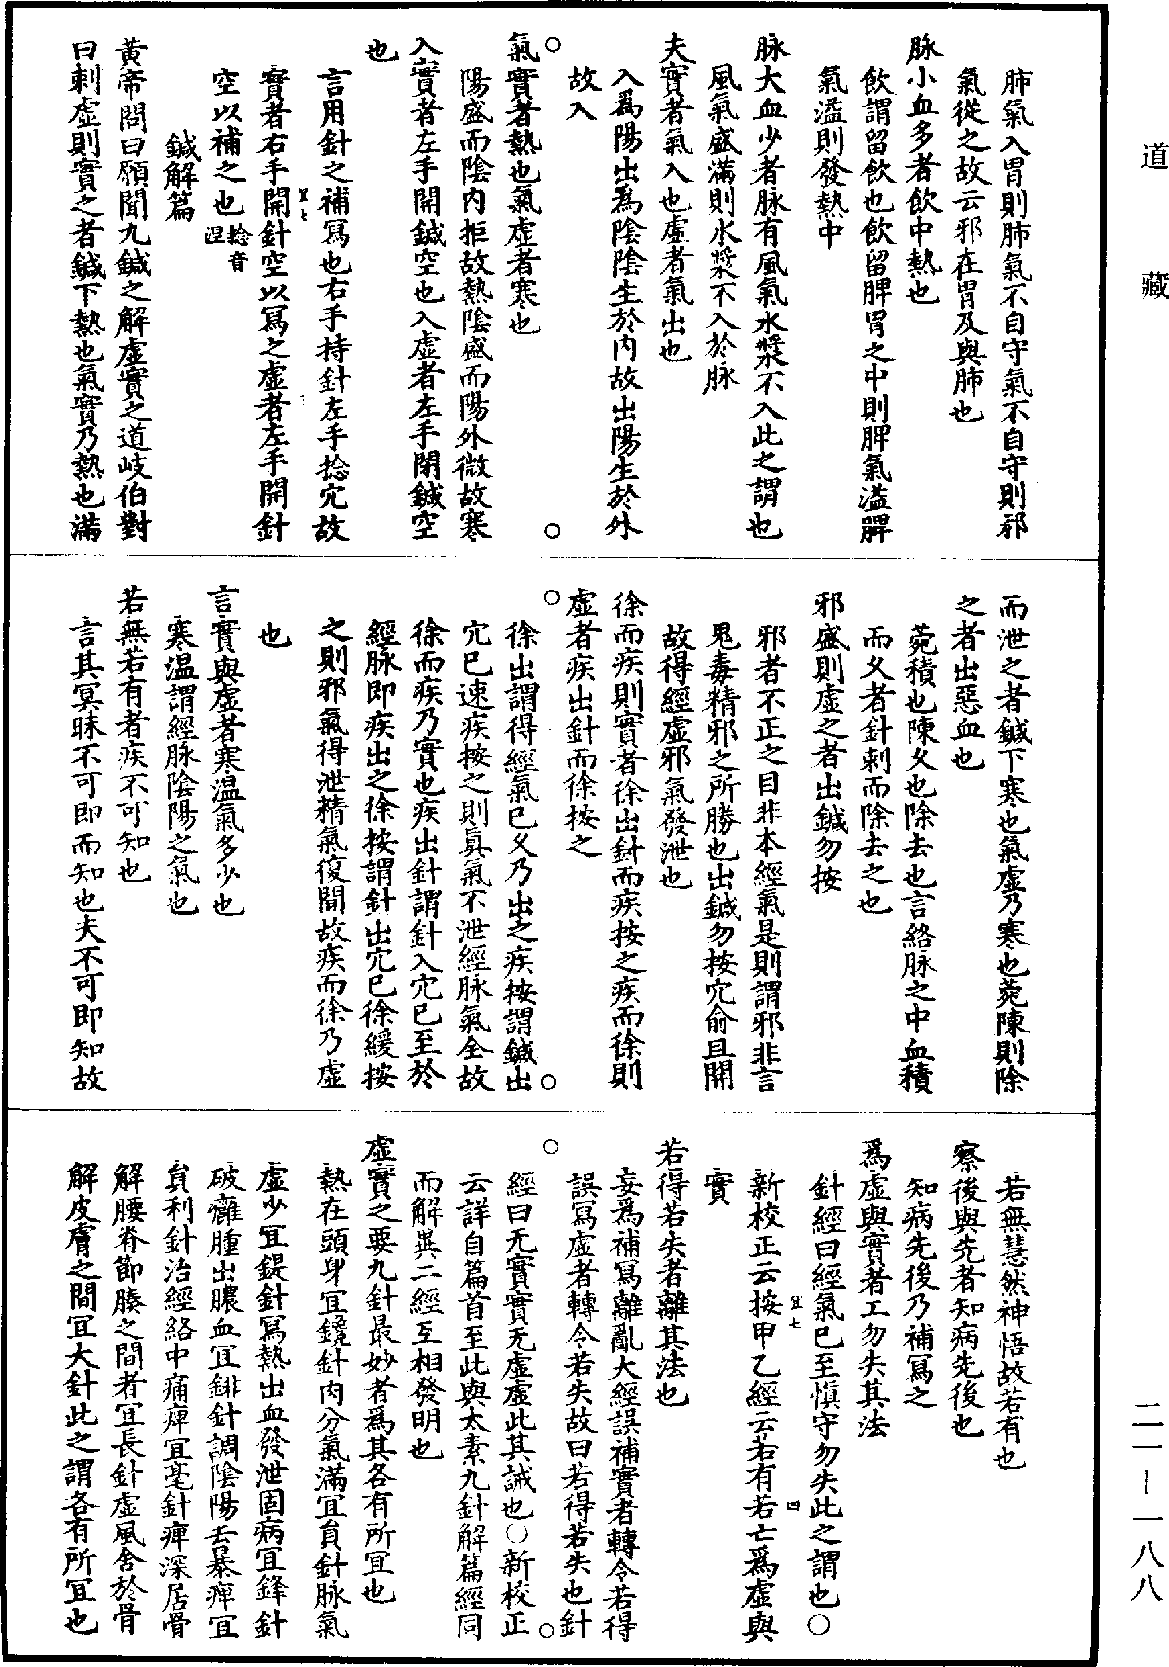 道藏
肺氣入胃則肺氣不自守氣不自守則邪
氣從之故云邪在胃及與肺也
脉小血多者飲中熱也
飲謂留飲也飲留脾胃之中則脾氣溢脾
氣溢則發熱中
脉大血少者脉有風氣水漿不入此之謂也
風氣盛滿則水漿不入於脉
夫實者氣入也虛者氣出也
入爲陽出爲陰陰生於内故出陽生於外
故入
氣實者熱也氣虛者寒也
陽盛而陰内拒故熱陰盛而陽外微故寒
入實者左手開鍼空也入虛者左手閉鍼空
也
言用針之補寫也右手持針左手捻穴故
實者右手開針空以寫之虛者左手開針
空以補之也捻音涅
鍼解篇
黃帝問曰願聞九鍼之解虛實之道岐伯對
曰刺虛則實之者鍼下熱也氣實乃熱也滿
而泄之者鍼下寒也氣虛乃寒也菀陳則除
之者出惡血也
菀積也陳久也除去也言絡脉之中血積
而久者針刺而除去之也
邪盛則虛之者出鍼勿按
邪者不正之目非本經氣是則謂邪非言
鬼毒精邪之所勝也出鍼勿按穴俞且開
故得經虛邪氣發泄也
徐而疾則實者徐出針而疾按之疾而徐則
虛者疾出針而徐按之
徐出謂得經氣已久乃出之疾按謂鍼出
穴已速疾按之則真氣不泄經脉氣全故
徐而疾乃實也疾出針謂針入穴已至於
經脉即疾出之徐按謂針出穴已徐緩按
之則邪氣得泄精氣復閒故疾而徐乃虛
也
言實與虛者寒温氣多少也
寒温謂經脉陰陽之氣也
若無若有者疾不可知也
言其冥昧不可即而知也夫不可即知故
若無慧然神悟故若有也
察後與先者知病先後也
知病先後乃補寫之
爲虛與實者工勿失其法
針經曰經氣已至慎守勿失此之謂也○
新校正云按甲乙經云若有若亡爲虛與
實
若得若失者離其法也
妄爲補寫離亂大經誤補實者轉令若得
誤寫虛者轉令若失故曰若得若失也針
經曰无實實无虛虛此其誡也○新校正
云詳自篇首至此與太素九針解篇經同
而解異二經互相發明也
虛實之要九針最妙者爲其各有所宜也
熱在頭身宜鑱針肉分氣滿宜員針脉氣
虛少宜鍉針寫熱出血發泄固病宜鋒針
破癰腫出膿血宜鈹針調陰陽去暴痺宜
員利針治經絡中痛痺宜毫針痺深居骨
解腰脊節腠之間者宜長針虛風舍於骨
解皮膚之間宜大針此之謂各有所宜也
二一—一八八